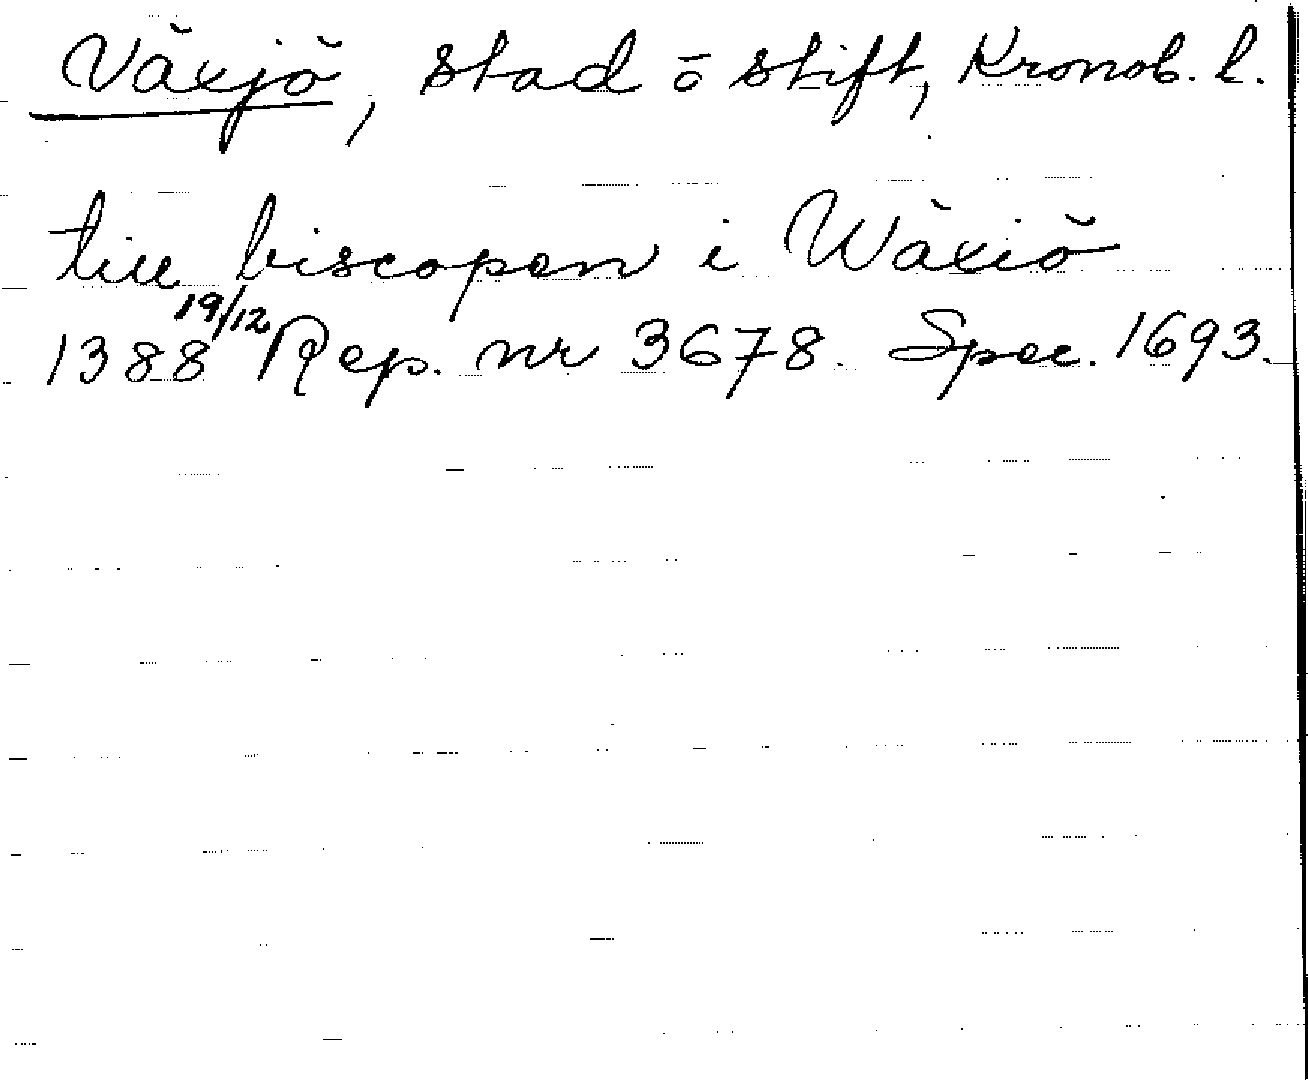 Växjö, stad ō stift, Kronob. l.
till biscopen i Wäxiö
1388 19/12 Rep. nr 3678. Spec. 1693.